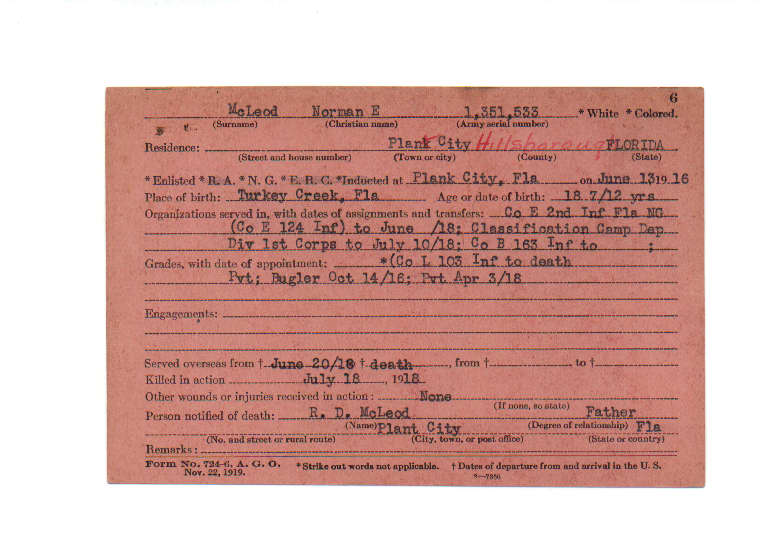 6
McLeod Norman E 1,351,533 * White * Colored.
(Surname) (Christian name) (Army serial number)
Residence: Plant City Hillsborough FLORIDA
(Street and house number) (Town or city) (County) (State)
* Enlisted * R. A. * N. G. * E. R. C. * Inducted at Plank City, Fla on June 13 19 16
Place of birth: Turkey Creek, Fla Age or date of birth: 18 7/12 yrs
Organizations served in, with dates of assignments and transfers: Co E 2nd Inf Fla NG
(Co E 124 Inf) to June /18; Classification Camp Dep
Div 1st Corps to July 10/18; Co B 163 Inf to ;
Grades, with date of appointment: *(Co L 103 Inf to death
Pvt; Bugler Oct 14/16; Pvt Apr 3/18
Engagements:
Served overseas from † June 20/18 † death, from † to †
Killed in action July 18, 1918
Other wounds or injuries received in action: None
(If none, so state)
Person notified of death: R. D. McLeod Father
(Name) (Degree of relationship)
Plant City Fla
(No. and street or rural route) (City, town, or post office) (State or country)
Remarks:
Form No. 724-6, A. G. O. * Strike out words not applicable. † Dates of departure from and arrival in the U. S.
Nov. 22, 1919.